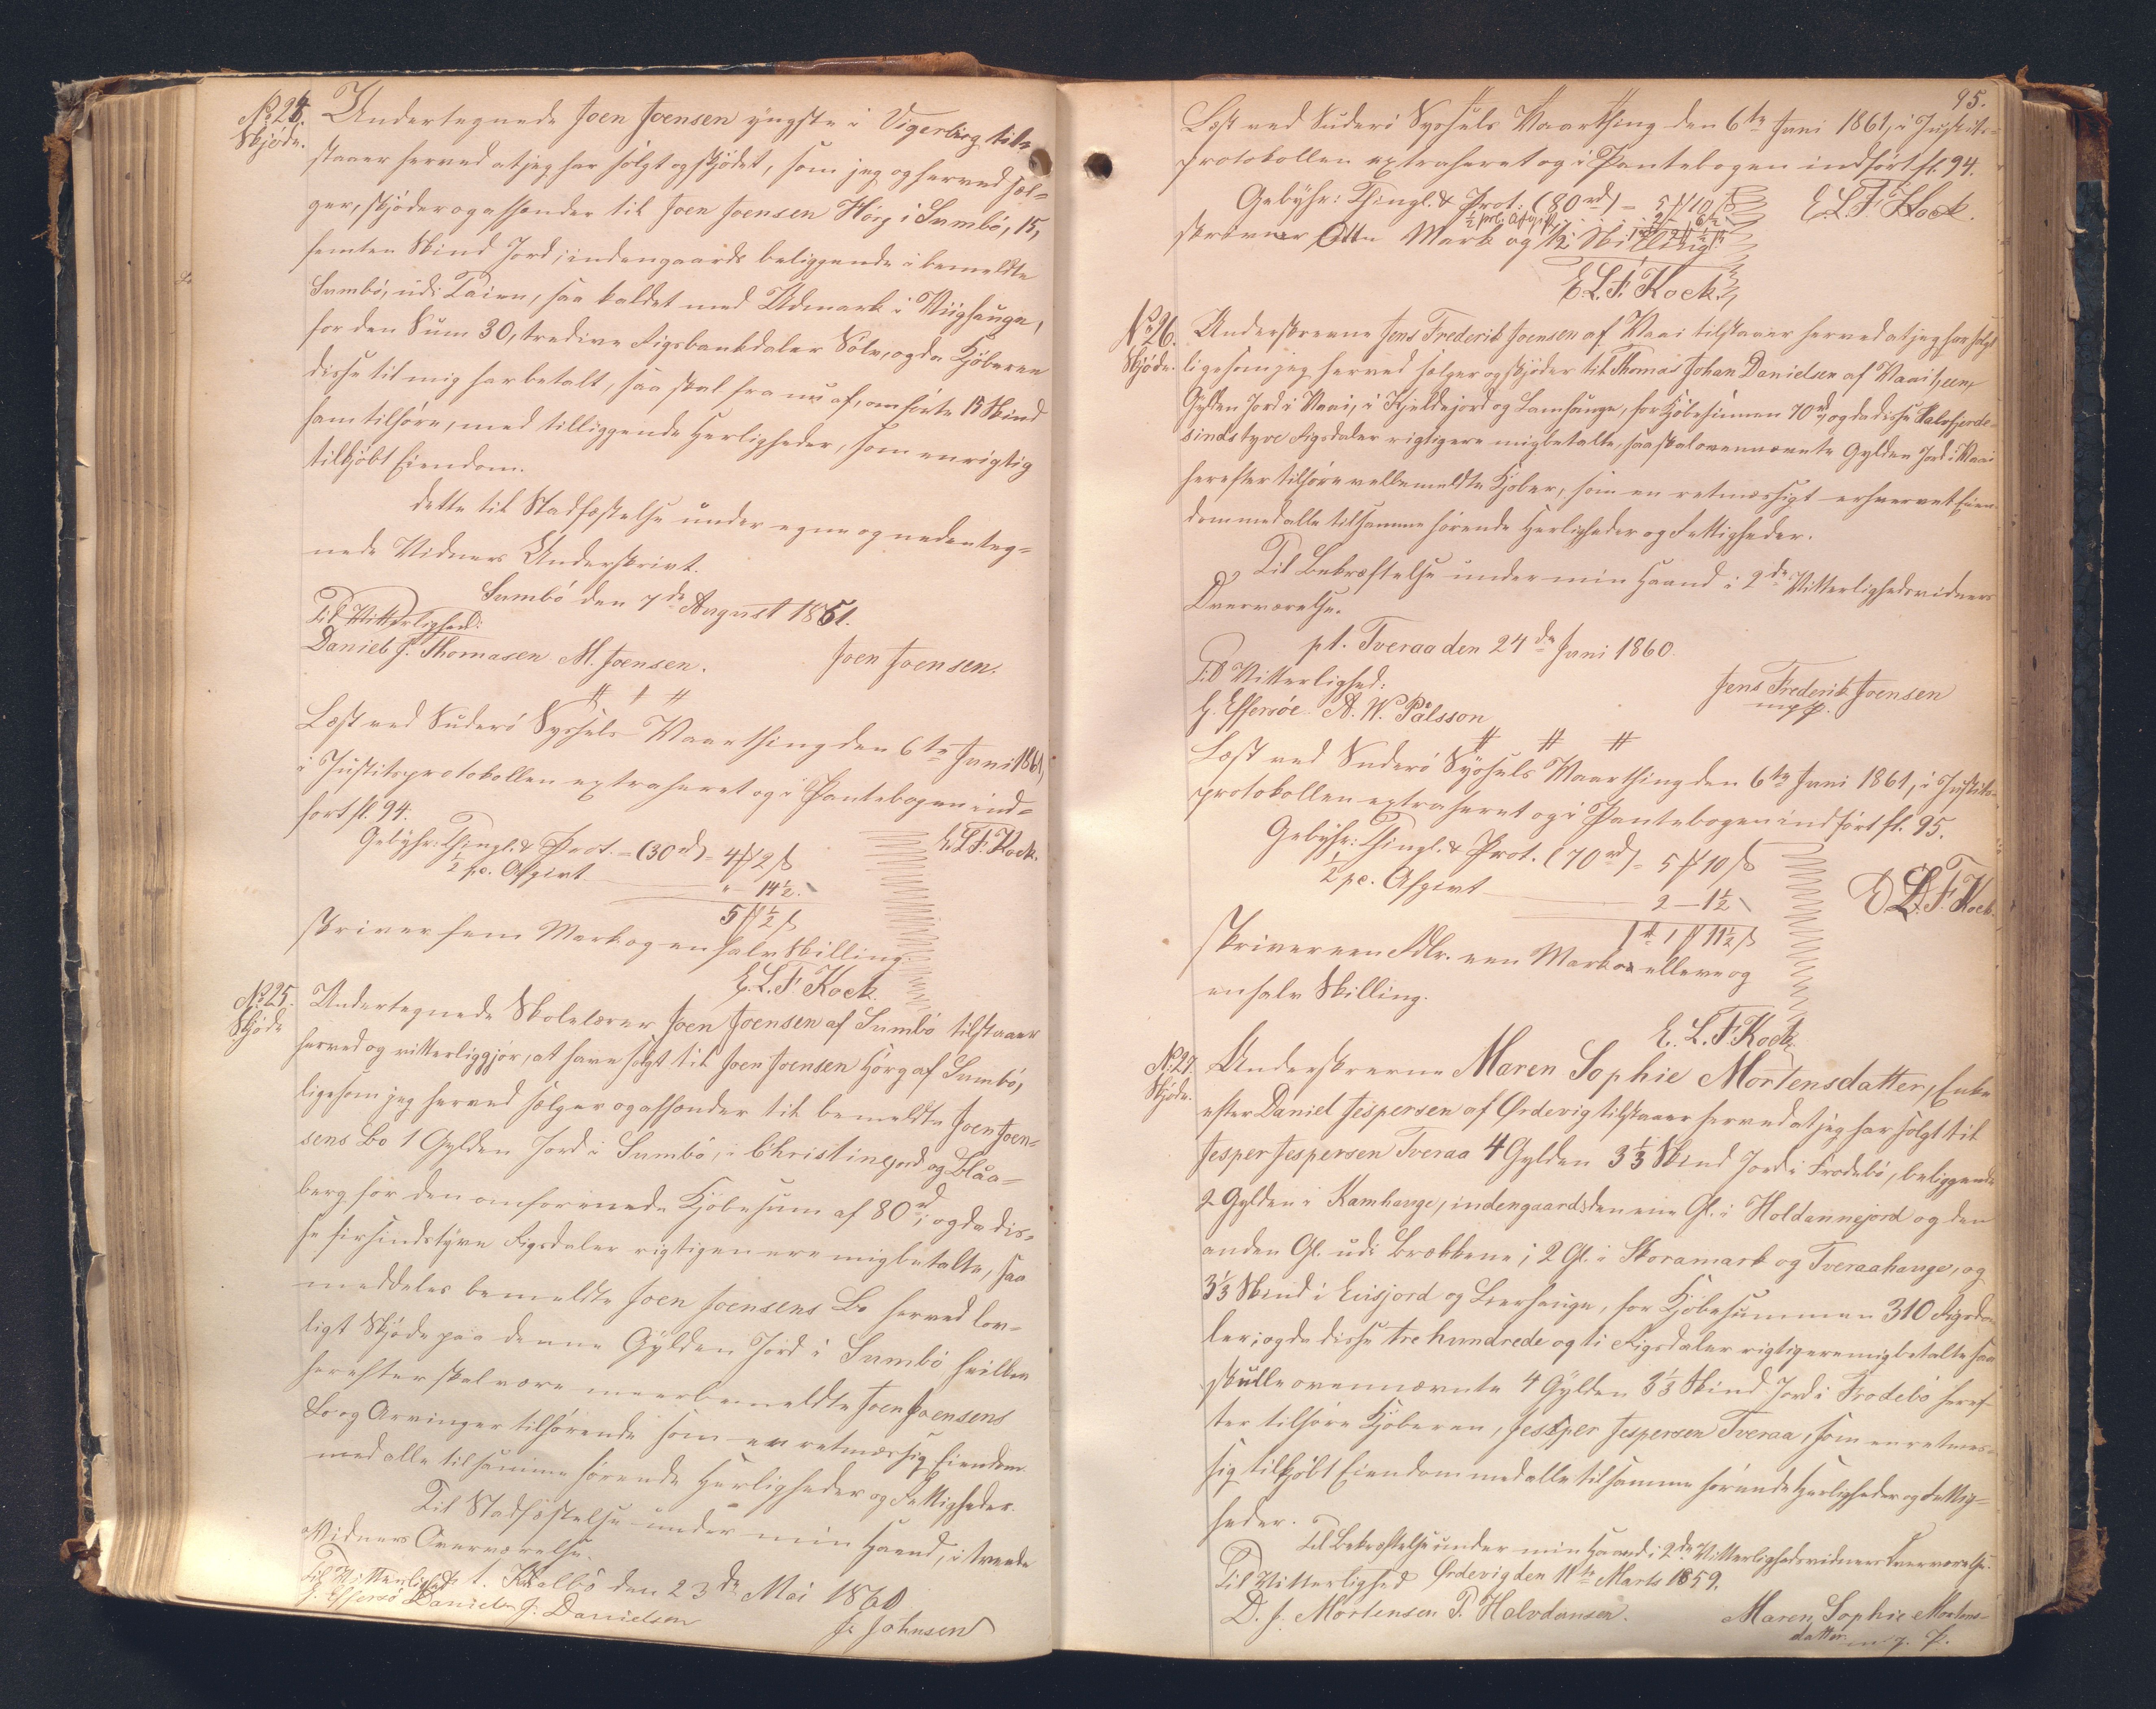 No 24.
Skjøde.
Undertegnede Joen Joensen yngste i Vigerbirg til-
staaer herved at jeg har solgt og skjødet, som jeg og herved sæl-
ger, skjøder og afhænder til Joen Joensen Hørg i Sumbø, 15,
femten Skind Jord, indengaards beliggende i bemeldte
Sumbø, udi saa kaldet med Udmark i
for den Sum 30, tredive Rigsbankdaler Sølv, og da Kjøberen
disse til mig har betalt, saa skal fra nu af, anførte 15 Skind
ham tilhøre, med tilliggende Herligheder, som en rigtig
tilkjøbt Eiendom.
Dette til Stadfæstelse under egne og nedenteg-
nede Vidners Underskrivt.
Sumbö den 7de August 1851.
Til Vitterlighed:
Daniel J. Thomasen M. Joensen. Joen Joensen.
Læst ved Suderö Syssels Vaarthing den 6te Juni 1861,
i Justitsprotokollen extraheret og i Pantebogen ind-
ført fl. 94.
E.L.F. Kock.
Gebyhr: Thingl. & Prot. = (30 rd) = 4 ℳ 2 ß
½ pc. Afgivt " — 14½
5 ℳ ½ ß
skriver fem Mark og en halv Skilling.
E.L.F. Kock.
No 25.
Skjøde
Undertegnede Skolelærer Joen Joensen af Sumbö tilstaaer
herved og vitterliggjør, at have solgt til Joen Joensen Hørg af Sumbö,
ligesom jeg herved sælger og afhænder til bemeldte Joen Joen-
sens Bo 1 Gylden Jord i Sumbö, i Christinejord og Blåa-
berg for den omforenede Kjøbesum af 80 rd; og da dis-
se firsindstyve Rigsdaler rigtigen ere mig betalte, saa
meddeles bemeldte Joen Joensens Bo herved lov-
ligt Skjøde paa denne Gylden Jord i Sumbö hvilken
herefter skal være meerbemeldte Joen Joensens
Bo og Arvinger tilhørende som en retmæssig Eiendom
med alle til samme hørende Herligheder og Rettigheder.
Til Stadfæstelse under min Haand, i tvende
Vidners Overværelse.
Til Vitterlighed: t. Kvalbö den 23de Mai 1860
G. Effersö Daniel J. Danielsen J. Johnsen
95.
Læst ved Suderö Syssels Vaarthing den 6te Juni 1861, i Justits-
protokollen extraheret og i Pantebogen indført fl. 94.
Gebyhr: Thingl. & Prot: (80 rd) = 5 ℳ 10 ß
E.L.F. Kock.
½ prc. Afgift 2 - 6½
skriver Otte Mark og ½ Skilling.
E.L.F. Kock.
No 26.
Skjøde.
Underskrevne Jens Frederik Joensen af Vaai tilstaaer herved at jeg har solgt
ligesom jeg herved sælger og skjøder til Thomas Johan Danielsen af Vaai 1, een,
Gylden Jord i Vaai, i Kjeldejord og Lamhauge, for Kjøbesummen 70 rd, og da disse Halvfjerde-
sindstyve Rigsdaler rigtig ere mig betalte, saa skal ovennævnte Gylden Jord i Vaai
herefter tilhøre velbemeldte Kjøber, som en retmæssigt erhvervet Eien-
dom med alle til samme hørende Herligheder og Rettigheder.
Til Bekræftelse under min Haand i 2de Vitterlighedsvidners
Overværelse.
pt. Tveraa den 24de Juni 1860
Til Vitterlighed:
G. Effersöe A. W. Pålsson Jens Frederik Joensen
m. p.
Læst ved Suderö Syssels Vaarthing den 6te Juni 1861, i Justits-
protokollen extraheret og i Pantebogen indført fl. 95.
Gebyhr: Thingl. & Prot. (70 rd) = 5 ℳ 10 ß
½ pc. Afgivt 2 — 1½
E.L.F. Kock.
1 rd 1 ℳ 11½ ß
Skriver een Rdlr. een Mark elleve og
en halv Skilling.
E.L.F. Kock.
No 27.
Skjøde.
Underskrevne Maren Sophie Mortensdatter, Enke
efter Daniel Jespersen af Ördevig tilstaaer herved at jeg har solgt til
Jesper Jespersen Tveraa 4 Gylden 3⅓ Skind Jord i Frodebö, beliggende
2 Gylden i Kamhauge, indengaards den ene Gl. i Holdannejord og den
anden Gl. udi Brekkene; 2 Gl. i Storamark og Tveraahauge, og
3⅓ Skind i Eiisjord og Leerhauge, for Kjøbesummen 310 Rigsda-
ler; og da disse tre hundrede og ti Rigsdaler rigtig ere mig betalte saa
skulle ovennævnte 4 Gylden 3⅓ Skind Jord i Frodebö heref-
ter tilhøre Kjøberen, Jesper Jespersen Tveraa, som en retmæs-
sig tilkjøbt Eiendom med alle til samme hørende Herligheder og Rettig-
heder.
Til Bekræftelse under min Haand i 2de Vitterlighedsvidners Overværelse.
Til Vitterlighed Ördevig den 11te Marts 1859.
D. J. Mortensen P. Halvdansen. Maren Sophie Mortens-
datter m. p.